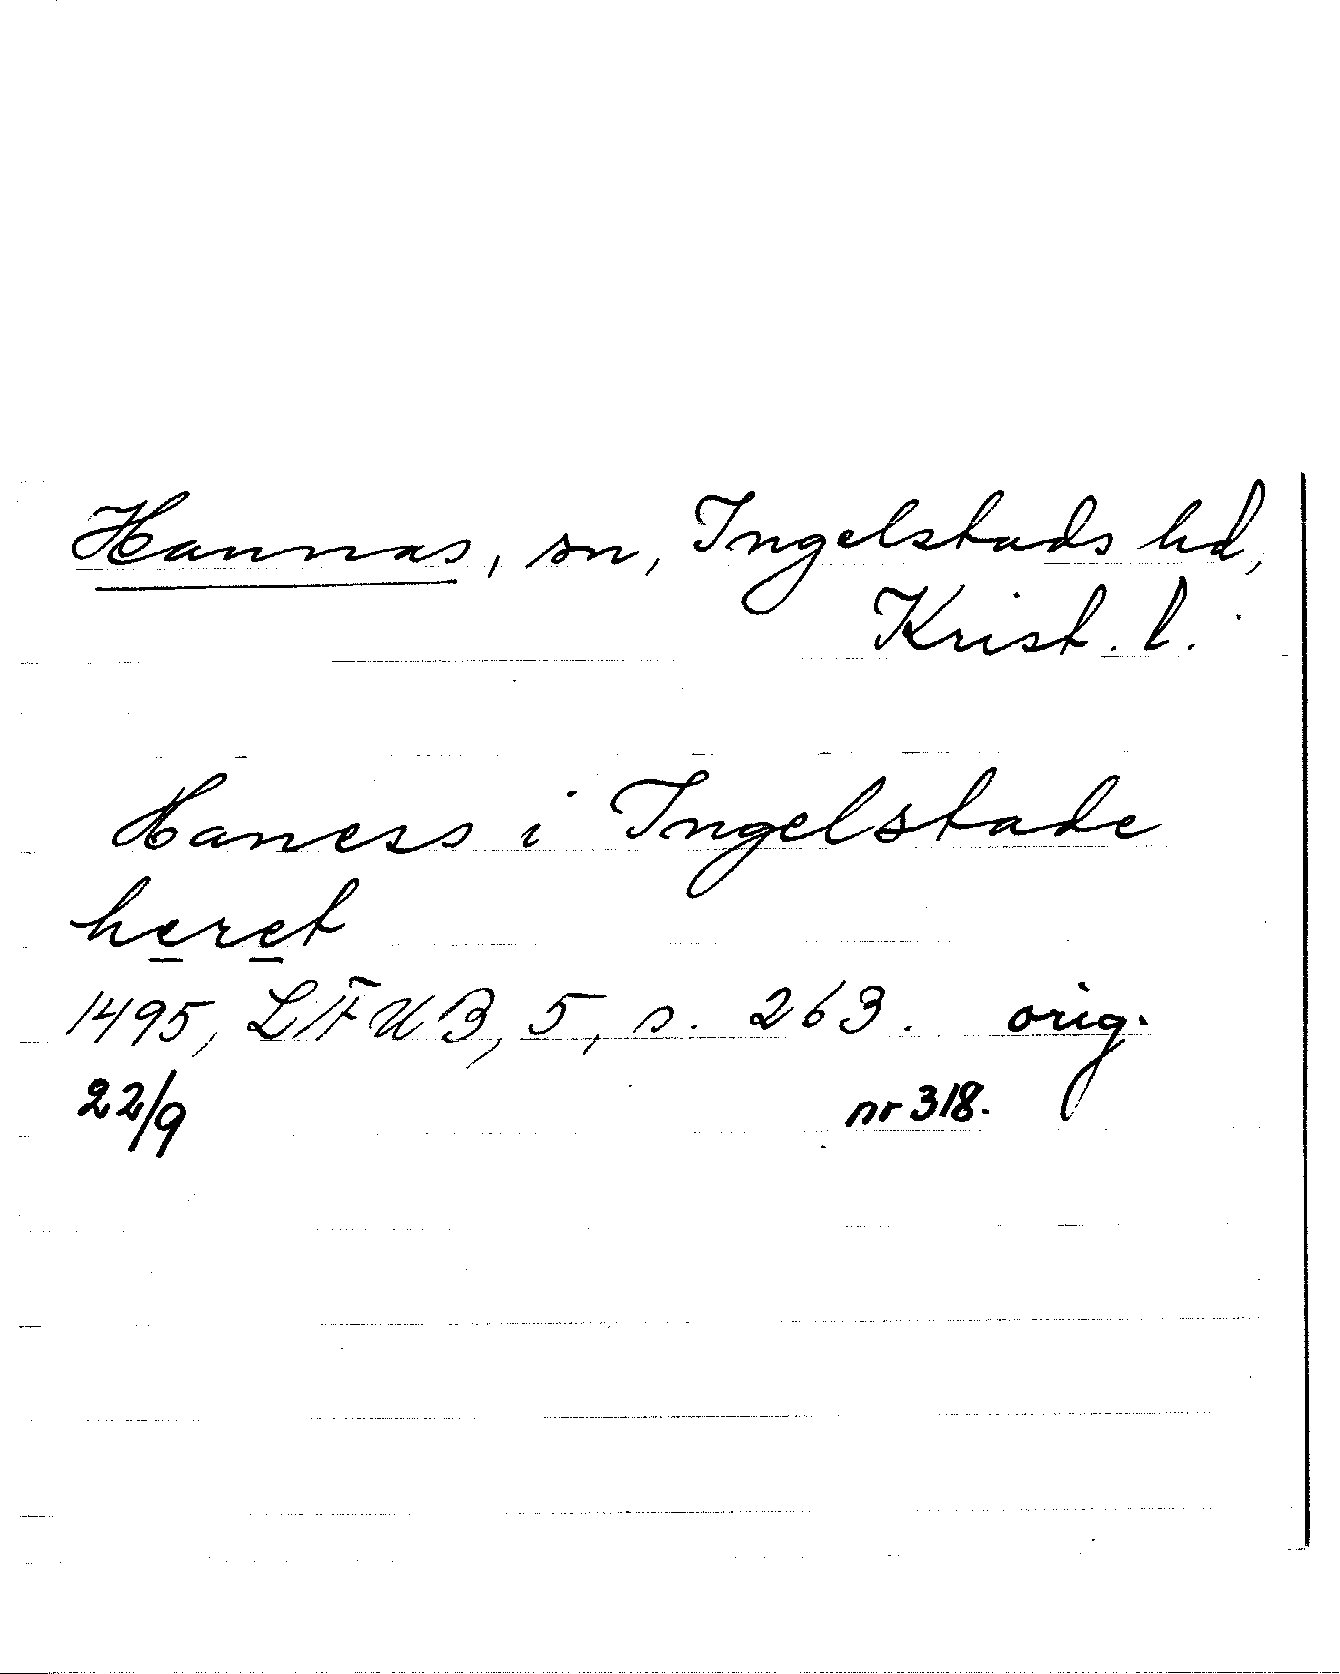 Hannas, sn, Ingelstads hd,
Krist. l.
Haness i Ingelstade
heret
1495, LÄUB, 5, s. 263. orig.
22/9 nr 318.